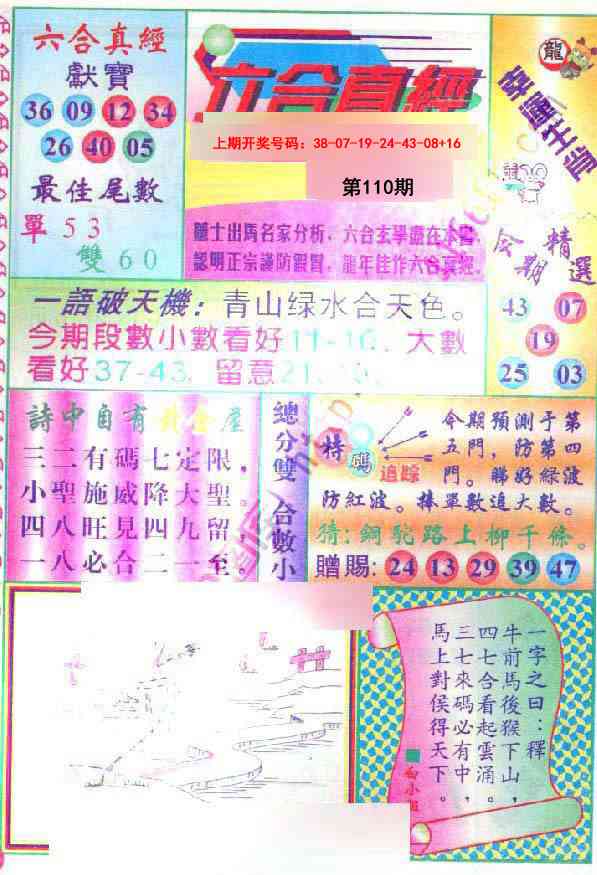 六合真經
獻寶
36 09 12 34
26 40 05
最佳尾數
單 5 3
雙 6 0
六合真經
上期开奖号码：38-07-19-24-43-08+16
第110期
龍
幸運生肖
今期精選
43 07
19
25 03
隨士出馬名家分析，六合玄學盡在本書，
認明正宗謹防假冒，龍年佳作六合真經。
一語破天機：青山绿水合天色。
今期段數小數看好11-16，大數
看好37-43，留意
詩中自有黃金屋
三二有碼七定限，
小聖施威降大聖。
四八旺見四九留，
一八必合二一至。
總分雙 合數小
特碼
追踪
令期預測于第
五門，防第四
門。睇好綠波
防紅波。捧單數追大數。
猜：銅駝路上柳千條。
贈賜：24 13 29 39 47
一字之曰：釋
牛前馬後猴下山，
四七合看起雲涌。
三七來碼必有中，
馬上對侯得天下。